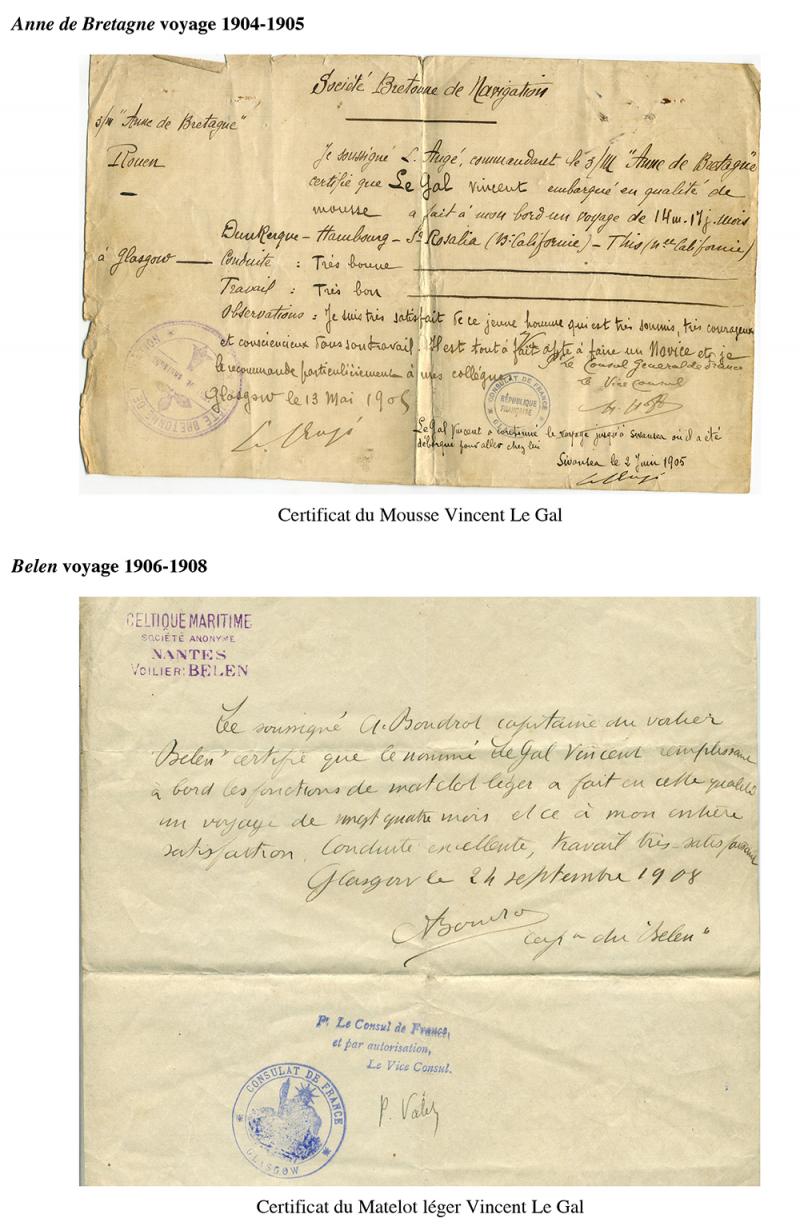 Anne de Bretagne voyage 1904-1905
Société Bretonne de Navigation
3/m "Anne de Bretagne"
Rouen
Je soussigné L. Augé, commandant le 3/M "Anne de Bretagne"
certifie que Le Gal Vincent embarqué en qualité de
mousse a fait à mon bord un voyage de 14 m. 17 j. mois
Dunkerque – Hambourg – Sta Rosalia (Bse Californie) – Thio (Nlle Californie)
à Glasgow — Conduite : Très bonne
Travail : Très bon
Observations : Je suis très satisfait de ce jeune homme qui est très soumis, très courageux
et consciencieux dans son travail. Il est tout à fait apte à faire un Novice et je
le recommande particulièrement à mes collègues
Pr le Consul General de France
le Vice Consul
Glasgow le 13 Mai 1905
CONSULAT DE FRANCE
RÉPUBLIQUE
FRANÇAISE
Le Gal Vincent a continué le voyage jusqu'à Swansea où il a été
débarqué pour aller chez lui
Swansea le 2 Juin 1905
Certificat du Mousse Vincent Le Gal
Belen voyage 1906-1908
CELTIQUE MARITIME
SOCIÉTÉ ANONYME
NANTES
VOILIER: BELEN
Je soussigné A. Boudrot capitaine du voilier
"Belen" certifie que le nommé Le Gal Vincent remplissant
à bord les fonctions de matelot léger a fait en cette qualité
un voyage de vingt quatre mois et ce à mon entière
satisfaction. Conduite excellente, travail très satisfaisant
Glasgow le 24 septembre 1908
ABoudro
Capne du "Belen"
Pr. Le Consul de France,
et par autorisation,
Le Vice Consul.
CONSULAT DE FRANCE
GLASGOW
Certificat du Matelot léger Vincent Le Gal